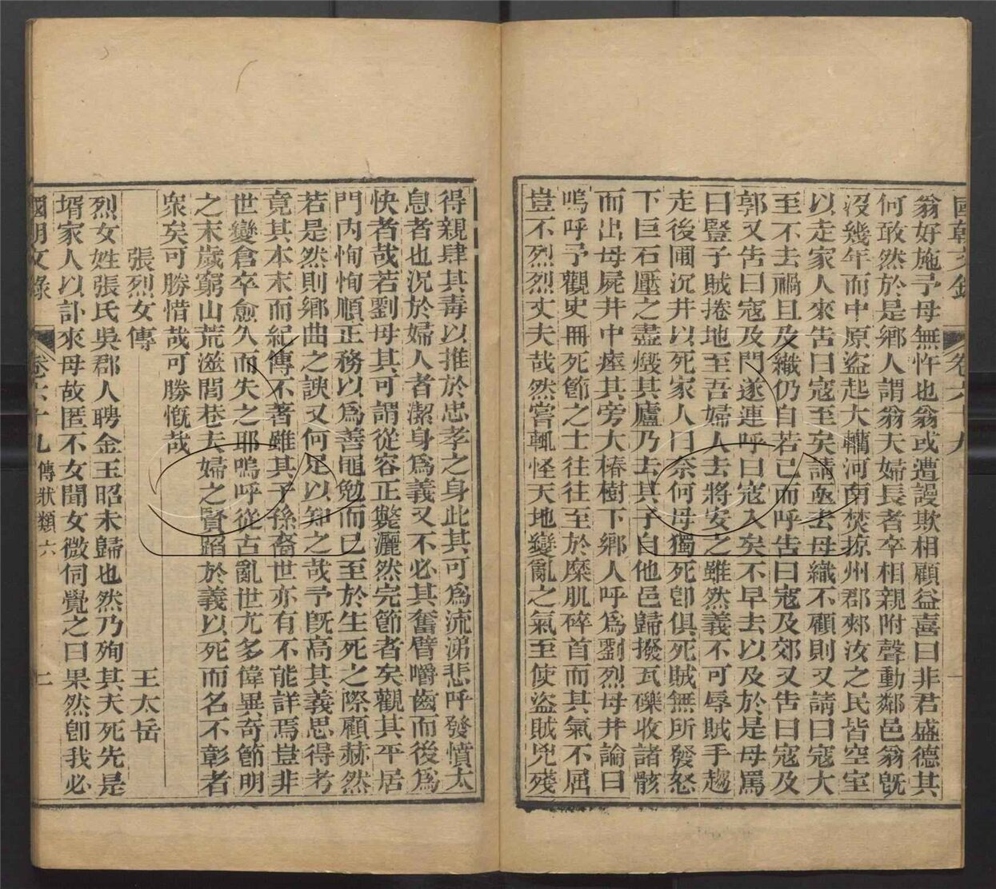 國朝文錄 卷六十九
翁好施予母無忤也翁或遭謾欺相顧益喜曰非君盛德其
何敢然於是鄉人謂翁夫婦長者卒相親附聲動鄰邑翁既
沒幾年而中原盜起大轥河南焚掠州郡郟汝之民皆空室
以走家人來告曰寇至矣請亟去母織不顧則又請曰寇大
至不去禍且及織仍自若已而呼告曰寇及郊又告曰寇及
郭又告曰寇及門遂連呼曰寇入矣不早去以及於是母罵
曰豎子賊捲地至吾婦人去將安之雖然義不可辱賊手趨
走後圃沉井以死家人曰奈何母獨死卽俱死賊無所發怒
下巨石壓之盡燬其廬乃去其子自他邑歸撥瓦礫收諸骸
而出母屍井中瘞其旁大椿樹下鄉人呼爲劉烈母井論曰
嗚呼予觀史冊死節之士往往至於糜肌碎首而其氣不屈
豈不烈烈丈夫哉然嘗輒怪天地變亂之氣至使盜賊兇殘
得親肆其毒以推於忠孝之身此其可爲流涕悲呼發憤太
息者也況於婦人者潔身爲義又不必其奮臂嚼齒而後爲
快者哉若劉母其可謂從容正斃灑然完節者矣觀其平居
門內恂恂順正務以爲善黽勉而已至於生死之際顧赫然
若是然則鄉曲之諛又何足以知之哉予既高其義思得考
竟其本末而紀傳不著雖其子孫裔世亦有不能詳焉豈非
世變倉卒愈久而失之耶嗚呼從古亂世尤多偉異奇節明
之末歲窮山荒遬閭巷夫婦之賢蹈於義以死而名不彰者
衆矣可勝惜哉可勝慨哉
張烈女傳 王太岳
烈女姓張氏吳郡人聘金王昭未歸也然乃殉其夫死先是
壻家人以訃來母故匿不女聞女微伺覺之曰果然卽我必
國朝文錄 卷六十九 傳狀類六 二